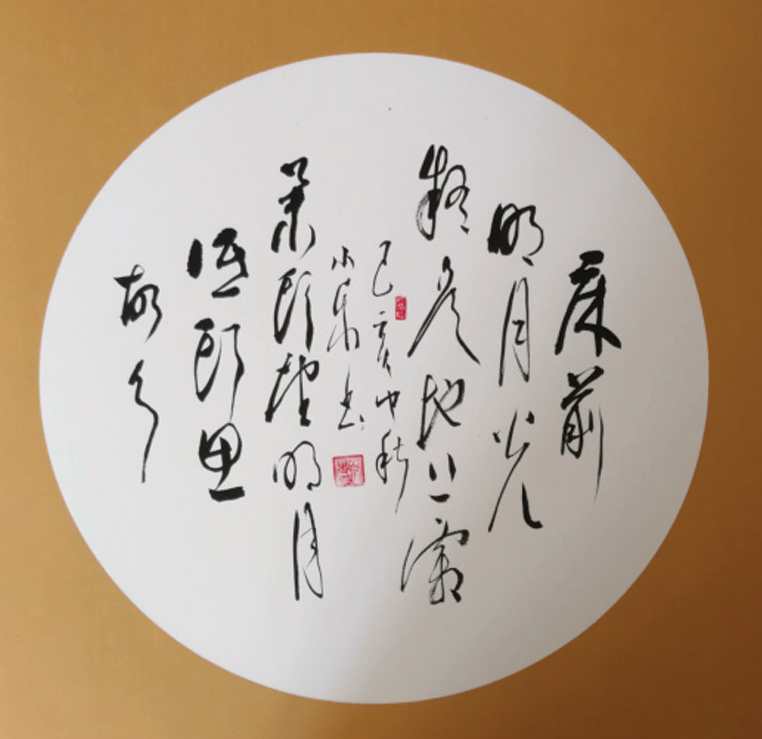 床前
明月光
疑是地上霜
己亥中秋
小 书
举头望明月
低头思
故乡